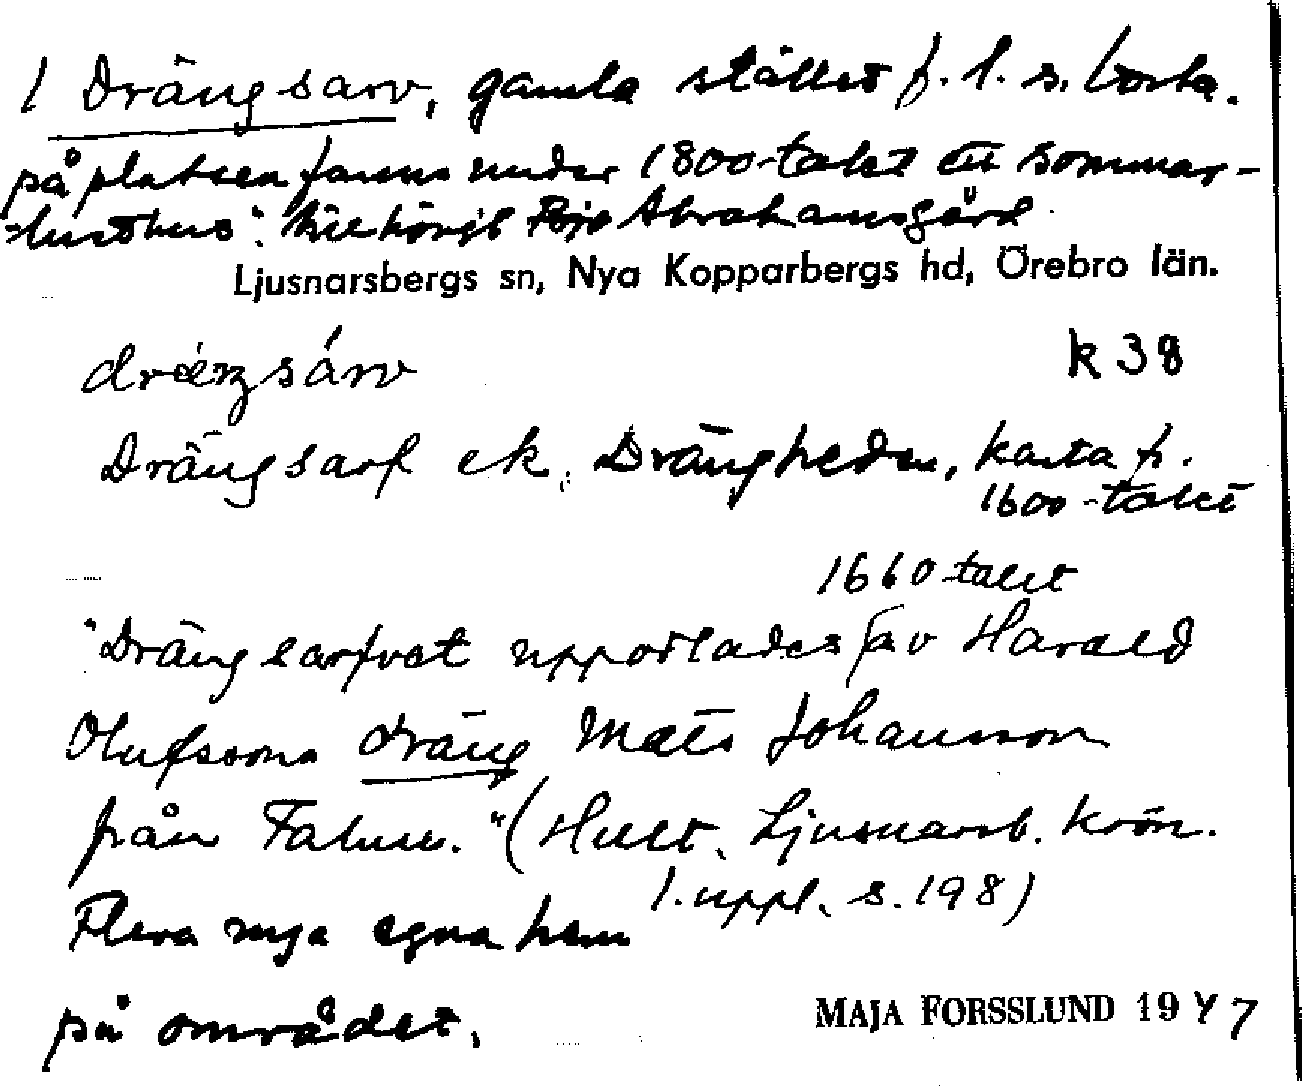 1 Drängsarv, gamla stället f. l. s. borta.
på platsen fanns under 1800-talet ett sommar-
-lusthus". tillhörigt Abrahamsgård
Ljusnarsbergs sn, Nya Kopparbergs hd, Örebro län.
dräŋsárv k 38
Drängsarf ek. Drängheden, karta fr.
1600-talet
1660 talet
"Drängsarfvet upporlades av Harald
Olufssons dräng Mats Johansson
från Falun." (Hult. Ljusnarsb. krön.
1. uppl. s. 198)
Flera nya egna hem
på området.
MAJA FORSSLUND 1947